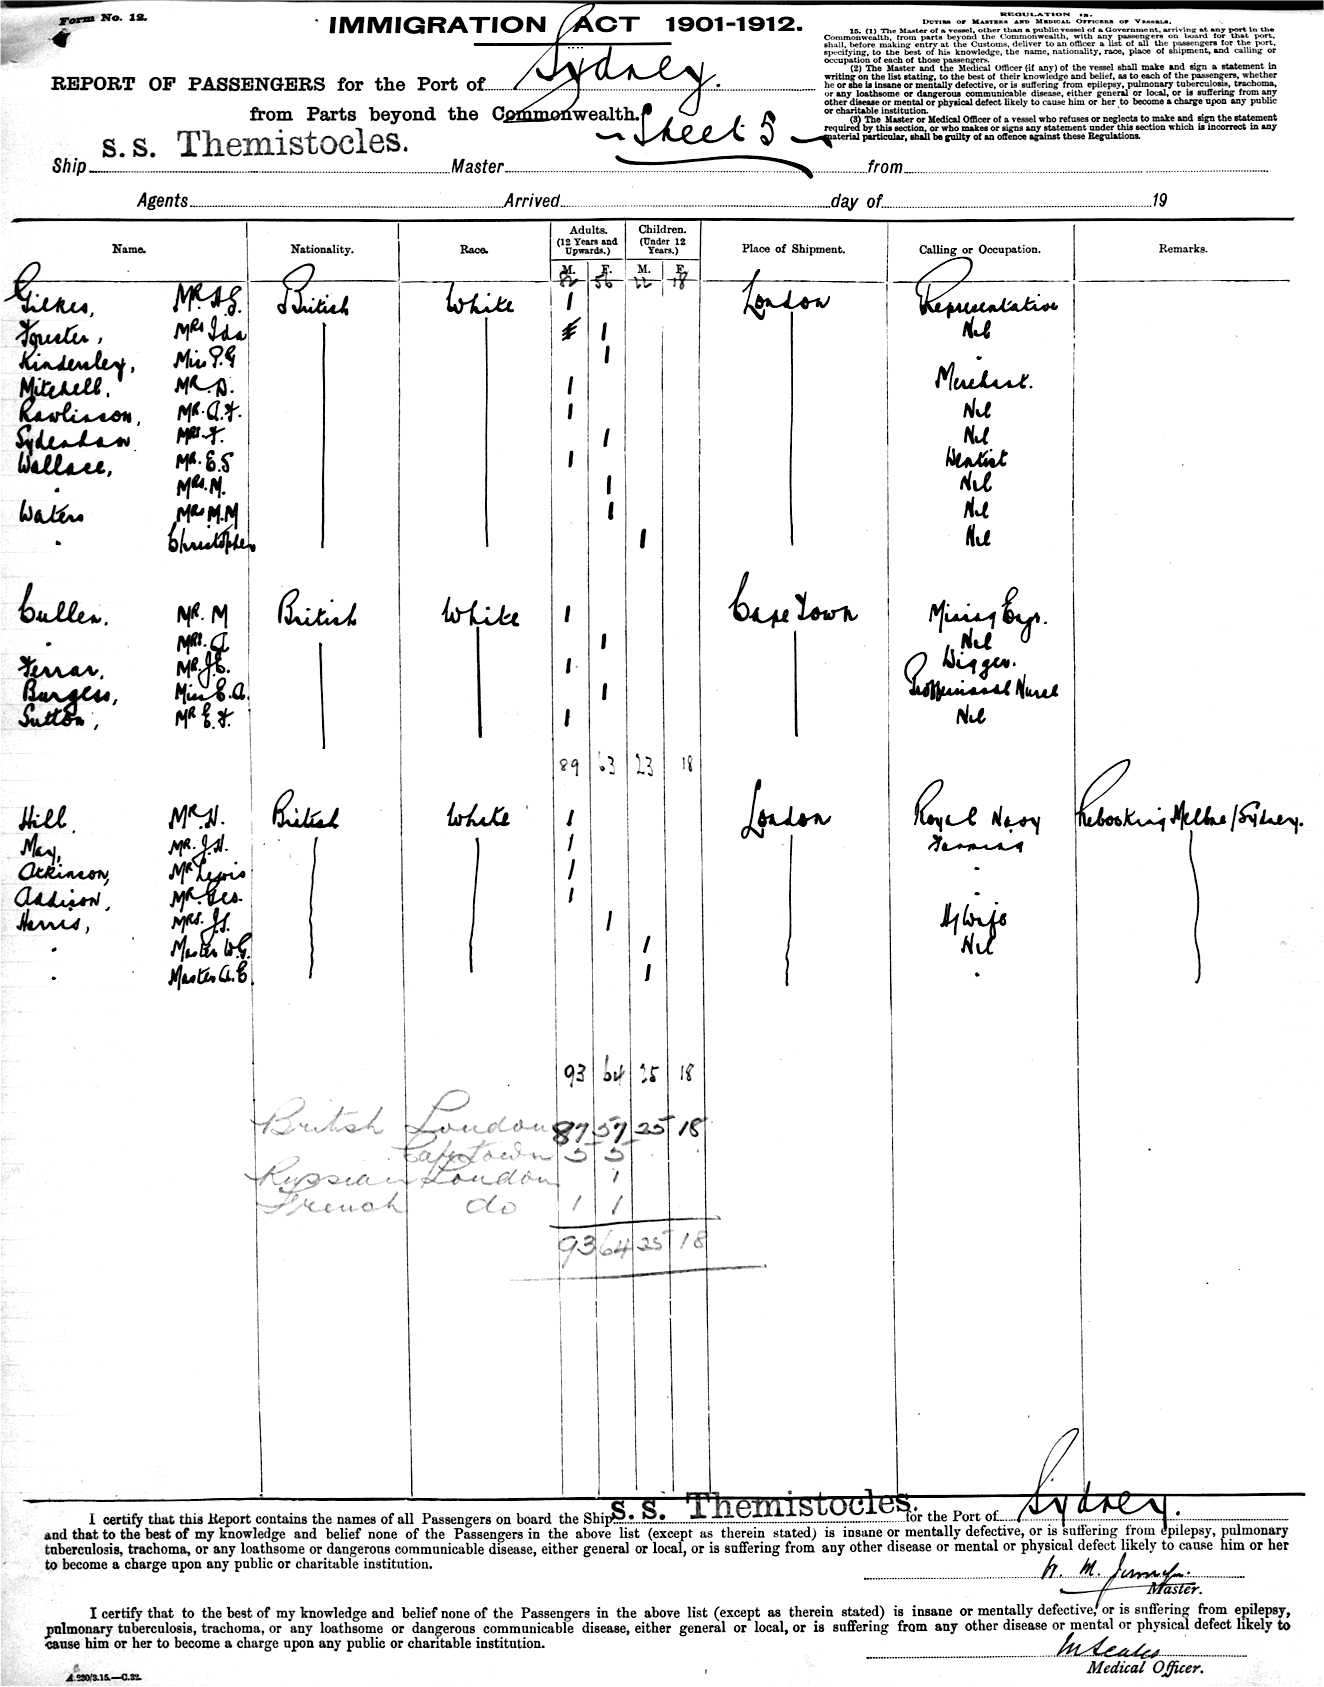 Form No. 12.
IMMIGRATION ACT 1901-1912.
REPORT OF PASSENGERS for the Port of Sydney.
from Parts beyond the Commonwealth.
Sheet 5
REGULATION 15.
DUTIES OF MASTERS AND MEDICAL OFFICERS OF VESSELS.
15. (1) The Master of a vessel, other than a public vessel of a Government, arriving at any port in the
Commonwealth, from parts beyond the Commonwealth, with any passengers on board for that port,
shall, before making entry at the Customs, deliver to an officer a list of all the passengers for the port,
specifying, to the best of his knowledge, the name, nationality, race, place of shipment, and calling or
occupation of each of those passengers.
(2) The Master and the Medical Officer (if any) of the vessel shall make and sign a statement in
writing on the list stating, to the best of their knowledge and belief, as to each of the passengers, whether
he or she is insane or mentally defective, or is suffering from epilepsy, pulmonary tuberculosis, trachoma,
or any loathsome or dangerous communicable disease, either general or local, or is suffering from any
other disease or mental or physical defect likely to cause him or her to become a charge upon any public
or charitable institution.
(3) The Master or Medical Officer of a vessel who refuses or neglects to make and sign the statement
required by this section, or who makes or signs any statement under this section which is incorrect in any
material particular, shall be guilty of an offence against these Regulations.
Ship S.S. Themistocles. Master from
Agents Arrived day of 19
Name. Nationality. Race. Adults. (12 Years and Upwards.) Children. (Under 12 Years.) Place of Shipment. Calling or Occupation. Remarks.
M. F. M. F.
82 56 22 18
Gilkes, Mr. H.G. British White 1 London Representative
Forester, Mrs Ida 1 Nil
Kindersley, Miss P.G 1 "
Mitchell, Mr. D. 1 Merchant.
Rawlisson, Mr. A.F. 1 Nil
Sydenham Mrs. F. 1 Nil
Wallace, Mr. E.S 1 Dentist
" Mrs. M. 1 Nil
Waters Mrs M.M 1 Nil
" Christopher 1 Nil
Cullen, Mr. M British White 1 Cape Town Mining Engr.
" Mrs. A 1 Nil
Ferrar, Mr. J.E. 1 Digger.
Burgess, Miss E.A. 1 Proffessional Nurse
Sutton, Mr E.F. 1 Nil
89 63 23 18
Hill, Mr H. British White 1 London Royal Navy Rebooking Melbne/Sydney.
May, Mr. J.H. 1 Farming
Atkinson, Mr Lewis 1 "
Addison, Mr. Geo. 1 "
Harris, Mrs. J.S. 1 H/Wife
" Master W.G. 1 Nil
" Master A.E. 1 "
93 64 25 18
British London 87 57 25 18
Cape Town 5 5
Russian London 1
French do 1 1
93 64 25 18
I certify that this Report contains the names of all Passengers on board the Ship S.S. Themistocles. for the Port of Sydney.
and that to the best of my knowledge and belief none of the Passengers in the above list (except as therein stated) is insane or mentally defective, or is suffering from epilepsy, pulmonary
tuberculosis, trachoma, or any loathsome or dangerous communicable disease, either general or local, or is suffering from any other disease or mental or physical defect likely to cause him or her
to become a charge upon any public or charitable institution.
Master.
I certify that to the best of my knowledge and belief none of the Passengers in the above list (except as therein stated) is insane or mentally defective, or is suffering from epilepsy,
pulmonary tuberculosis, trachoma, or any loathsome or dangerous communicable disease, either general or local, or is suffering from any other disease or mental or physical defect likely to
cause him or her to become a charge upon any public or charitable institution.
Medical Officer.
A.230/3.15.—C.22.